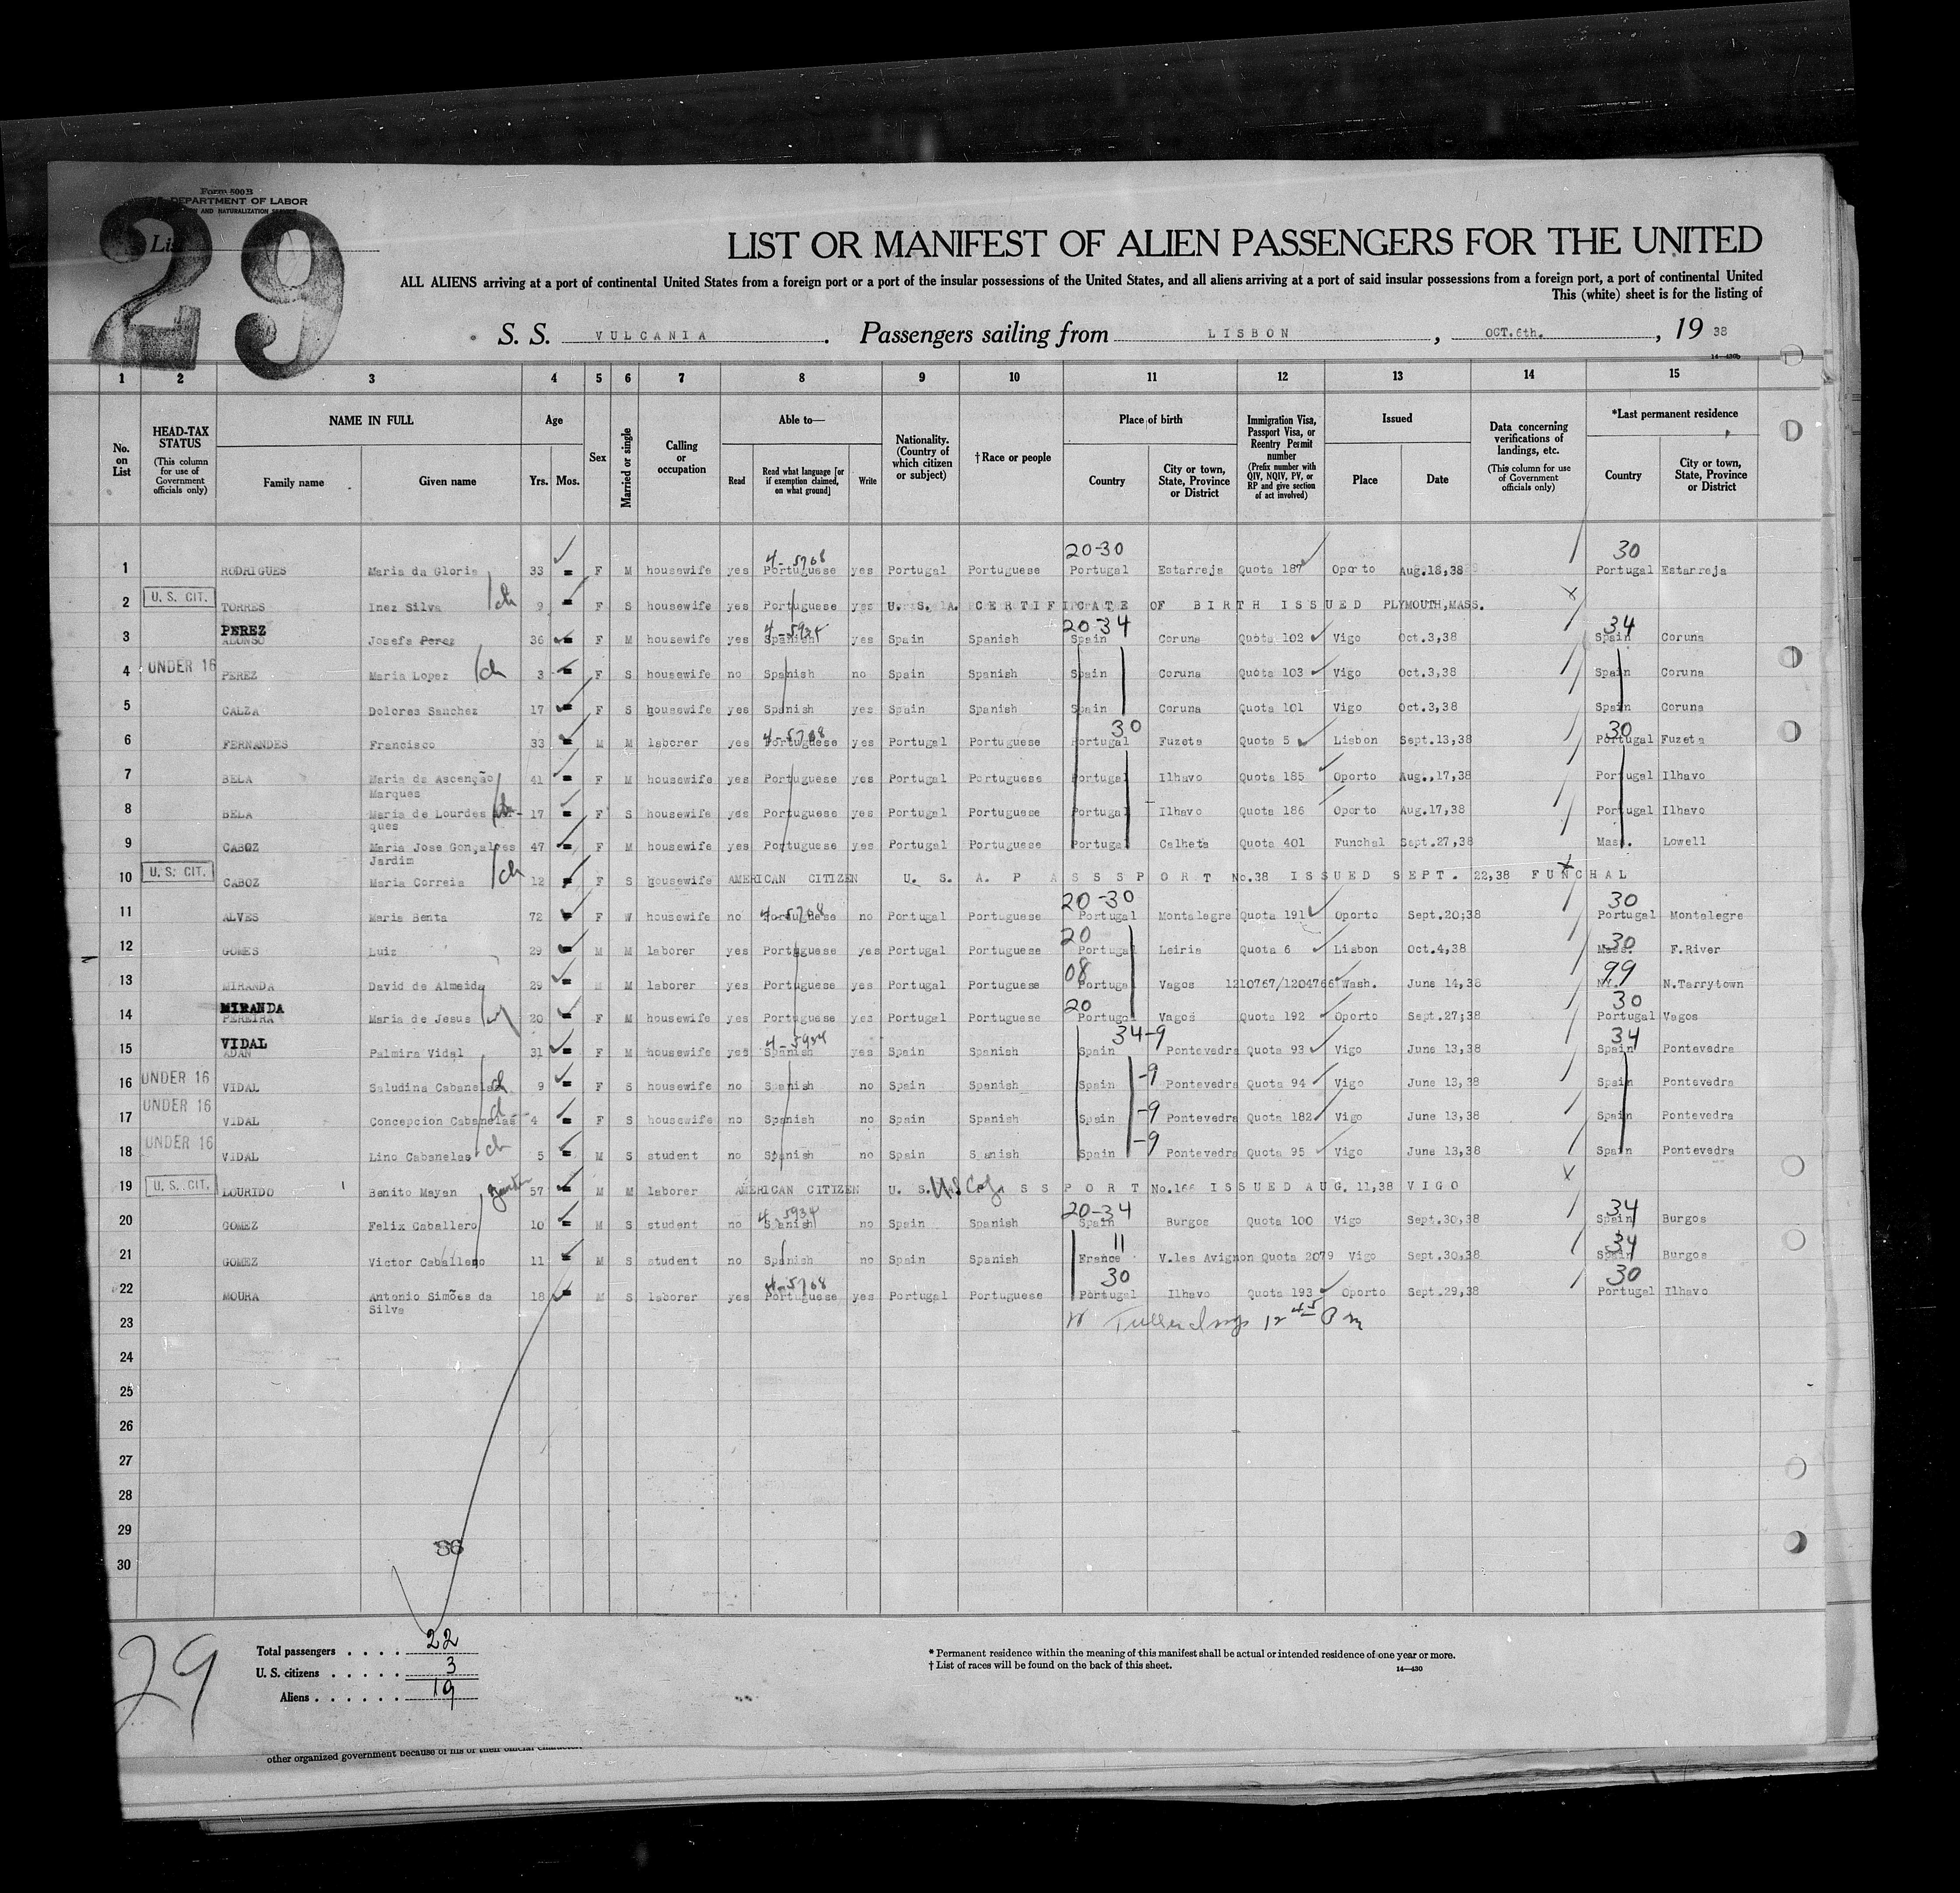 Form 500 B
DEPARTMENT OF LABOR
AND NATURALIZATION SERVICE
29
List
LIST OR MANIFEST OF ALIEN PASSENGERS FOR THE UNITED
ALL ALIENS arriving at a port of continental United States from a foreign port or a port of the insular possessions of the United States, and all aliens arriving at a port of said insular possessions from a foreign port, a port of continental United
This (white) sheet is for the listing of
S. S. VULCANIA . Passengers sailing from LISBON , OCT.6th. , 19 38
14—430b
1 2 3 4 5 6 7 8 9 10 11 12 13 14 15
No. on List
HEAD-TAX STATUS (This column for use of Government officials only)
NAME IN FULL Family name Given name
Age Yrs. Mos.
Sex
Married or single
Calling or occupation
Able to— Read Read what language [or if exemption claimed, on what ground] Write
Nationality. (Country of which citizen or subject)
†Race or people
Place of birth Country City or town, State, Province or District
Immigration Visa, Passport Visa, or Reentry Permit number (Prefix number with QIV, NQIV, PV, or RP and give section of act involved)
Issued Place Date
Data concerning verifications of landings, etc. (This column for use of Government officials only)
*Last permanent residence Country City or town, State, Province or District
4-5708 20-30 30
1 RODRIGUES Maria da Gloria 33 F M housewife yes Portuguese yes Portugal Portuguese Portugal Estarreja Quota 187 Oporto Aug.18,38 Portugal Estarreja
2 U. S. CIT. TORRES Inez Silva ch 9 F S housewife yes Portuguese yes U. S. A. CERTIFICATE OF BIRTH ISSUED PLYMOUTH,MASS. x
PEREZ 4-5934 20-34 34
3 ALONSO Josefa Perez 36 F M housewife yes Spanish yes Spain Spanish Spain Coruna Quota 102 Vigo Oct.3,38 Spain Coruna
4 UNDER 16 PEREZ Maria Lopez ch 3 F S housewife no Spanish no Spain Spanish Spain Coruna Quota 103 Vigo Oct.3,38 Spain Coruna
5 CALZA Dolores Sanchez 17 F S housewife yes Spanish yes Spain Spanish Spain Coruna Quota 101 Vigo Oct.3,38 Spain Coruna
4-5708 30 30
6 FERNANDES Francisco 33 M M laborer yes Portuguese yes Portugal Portuguese Portugal Fuzeta Quota 5 Lisbon Sept.13,38 Portugal Fuzeta
7 BELA Maria da Ascenção 41 F M housewife yes Portuguese yes Portugal Portuguese Portugal Ilhavo Quota 185 Oporto Aug.,17,38 Portugal Ilhavo
Marques
8 BELA Maria de Lourdes Mar- 17 F S housewife yes Portuguese yes Portugal Portuguese Portugal Ilhavo Quota 186 Oporto Aug.17,38 Portugal Ilhavo
ques
9 CABOZ Maria Jose Gonçalves 47 F M housewife yes Portuguese yes Portugal Portuguese Portugal Calheta Quota 401 Funchal Sept.27,38 Mass. Lowell
Jardim
10 U. S. CIT. CABOZ Maria Correia ch 12 F S housewife AMERICAN CITIZEN U. S. A. PASSSPORT No.38 ISSUED SEPT. 22,38 FUNCHAL x
4-5708 20-30 30
11 ALVES Maria Benta 72 F W housewife no Portuguese no Portugal Portuguese Portugal Montalegre Quota 191 Oporto Sept.20,38 Portugal Montalegre
20 30
12 GOMES Luiz 29 M M laborer yes Portuguese yes Portugal Portuguese Portugal Leiria Quota 6 Lisbon Oct.4,38 Mass. F.River
08 99
13 MIRANDA David de Almeida 29 M M laborer yes Portuguese yes Portugal Portuguese Portugal Vagos 1210767/1204766 Wash. June 14,38 NY. N.Tarrytown
MIRANDA 20 30
14 PEREIRA Maria de Jesus 20 F M housewife yes Portuguese yes Portugal Portuguese Portugal Vagos Quota 192 Oporto Sept.27,38 Portugal Vagos
VIDAL 4-5934 34-9 34
15 ADAN Palmira Vidal 31 F M housewife yes Spanish yes Spain Spanish Spain Pontevedra Quota 93 Vigo June 13,38 Spain Pontevedra
16 UNDER 16 VIDAL Saludina Cabanelas ch 9 F S housewife no Spanish no Spain Spanish Spain -9 Pontevedra Quota 94 Vigo June 13,38 Spain Pontevedra
17 UNDER 16 VIDAL Concepcion Cabanelas ch 4 F S housewife no Spanish no Spain Spanish Spain -9 Pontevedra Quota 182 Vigo June 13,38 Spain Pontevedra
18 UNDER 16 VIDAL Lino Cabanelas ch 5 M S student no Spanish no Spain S anish Spain -9 Pontevedra Quota 95 Vigo June 13,38 Spain Pontevedra
19 U. S. CIT. LOURIDO Benito Mayan 57 M M laborer AMERICAN CITIZEN U. S. PASSPORT No.166 ISSUED AUG. 11,38 VIGO x
4-5934 20-34 34
20 GOMEZ Felix Caballero 10 M S student no Spanish no Spain Spanish Spain Burgos Quota 100 Vigo Sept.30,38 Spain Burgos
11 34
21 GOMEZ Victor Caballero 11 M S student no Spanish no Spain Spanish France V.les Avignon Quota 2079 Vigo Sept.30,38 Spain Burgos
4-5708 30 30
22 MOURA Antonio Simões da 18 M S laborer yes Portuguese yes Portugal Portuguese Portugal Ilhavo Quota 193 Oporto Sept.29,38 Portugal Ilhavo
Silva
23
24
25
26
27
28
29
30
86
29
Total passengers . . . . 22
U. S. citizens . . . . . . 3
Aliens . . . . . . 19
* Permanent residence within the meaning of this manifest shall be actual or intended residence of one year or more.
† List of races will be found on the back of this sheet.
14—430
other organized government because of his or their official character.